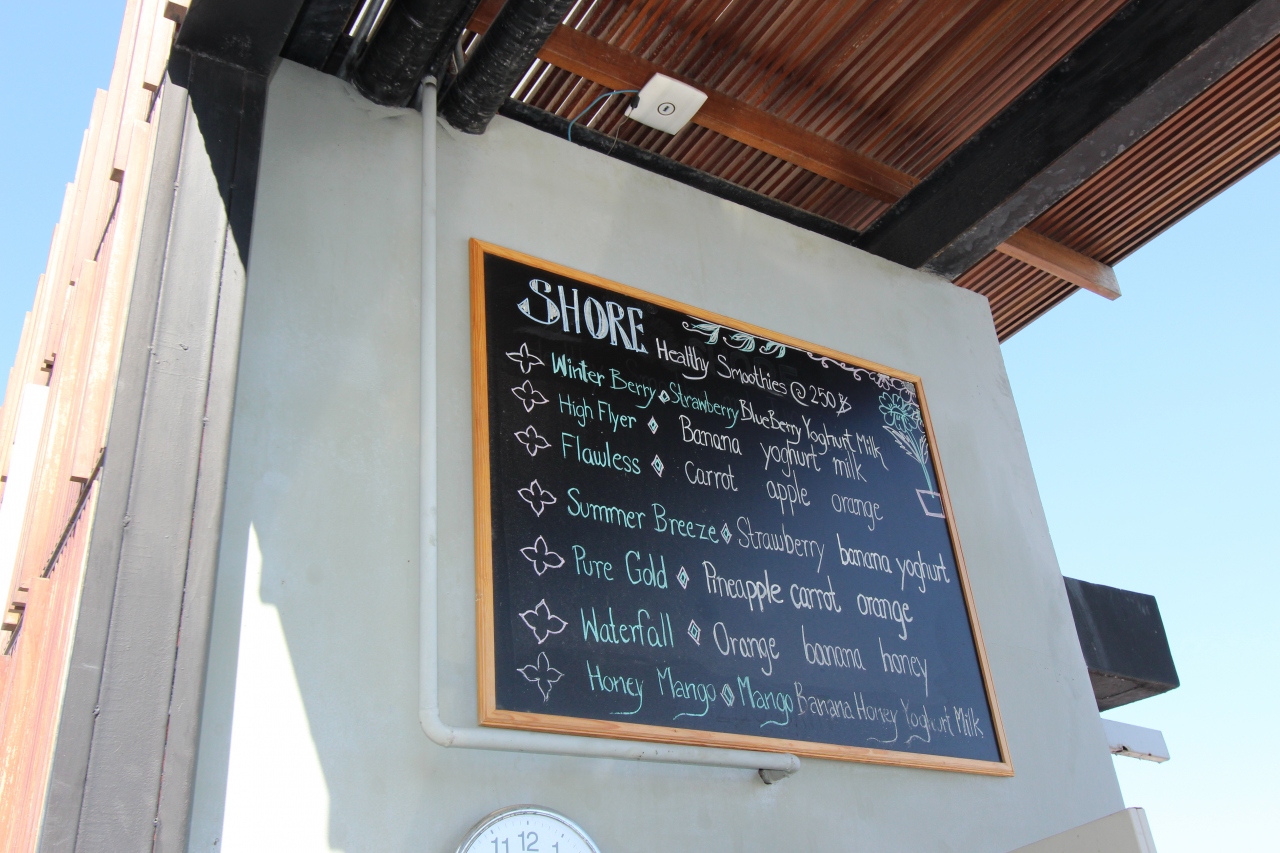 SHORE
Healthy Smoothies @ 250 ฿
Winter Berry Strawberry BlueBerry Yoghurt Milk
High Flyer Banana yoghurt milk
Flawless Carrot apple orange
Summer Breeze Strawberry banana yoghurt
Pure Gold Pineapple carrot orange
Waterfall Orange banana honey
Honey Mango Mango Banana Honey Yoghurt Milk
11 12 1